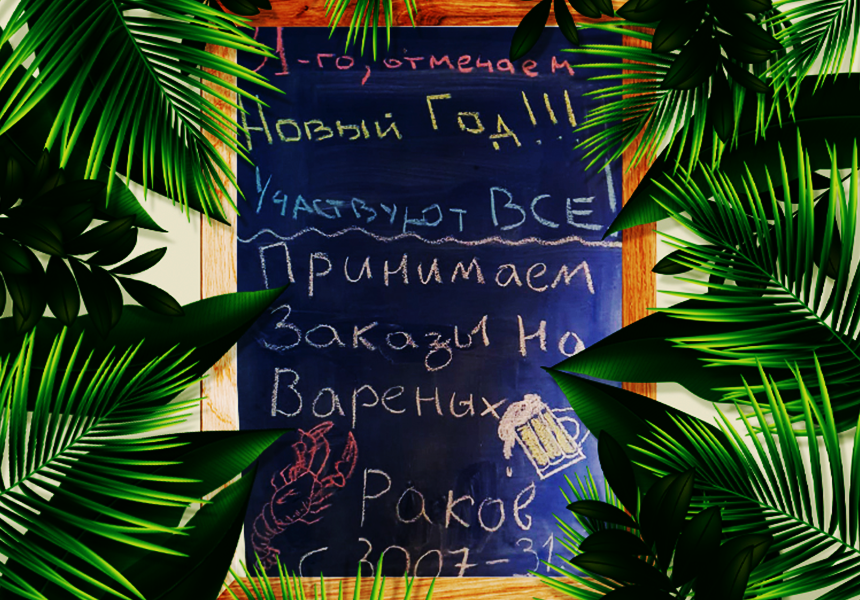 31-го, отмечаем
Новый Год!!!
Участвуют ВСЕ!
Принимаем
Заказы на
Вареных
Раков
с 3007-31.